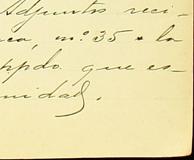 Adjuntos reci-
nca, nº. 35 a la
ppdo que es-
nidad.